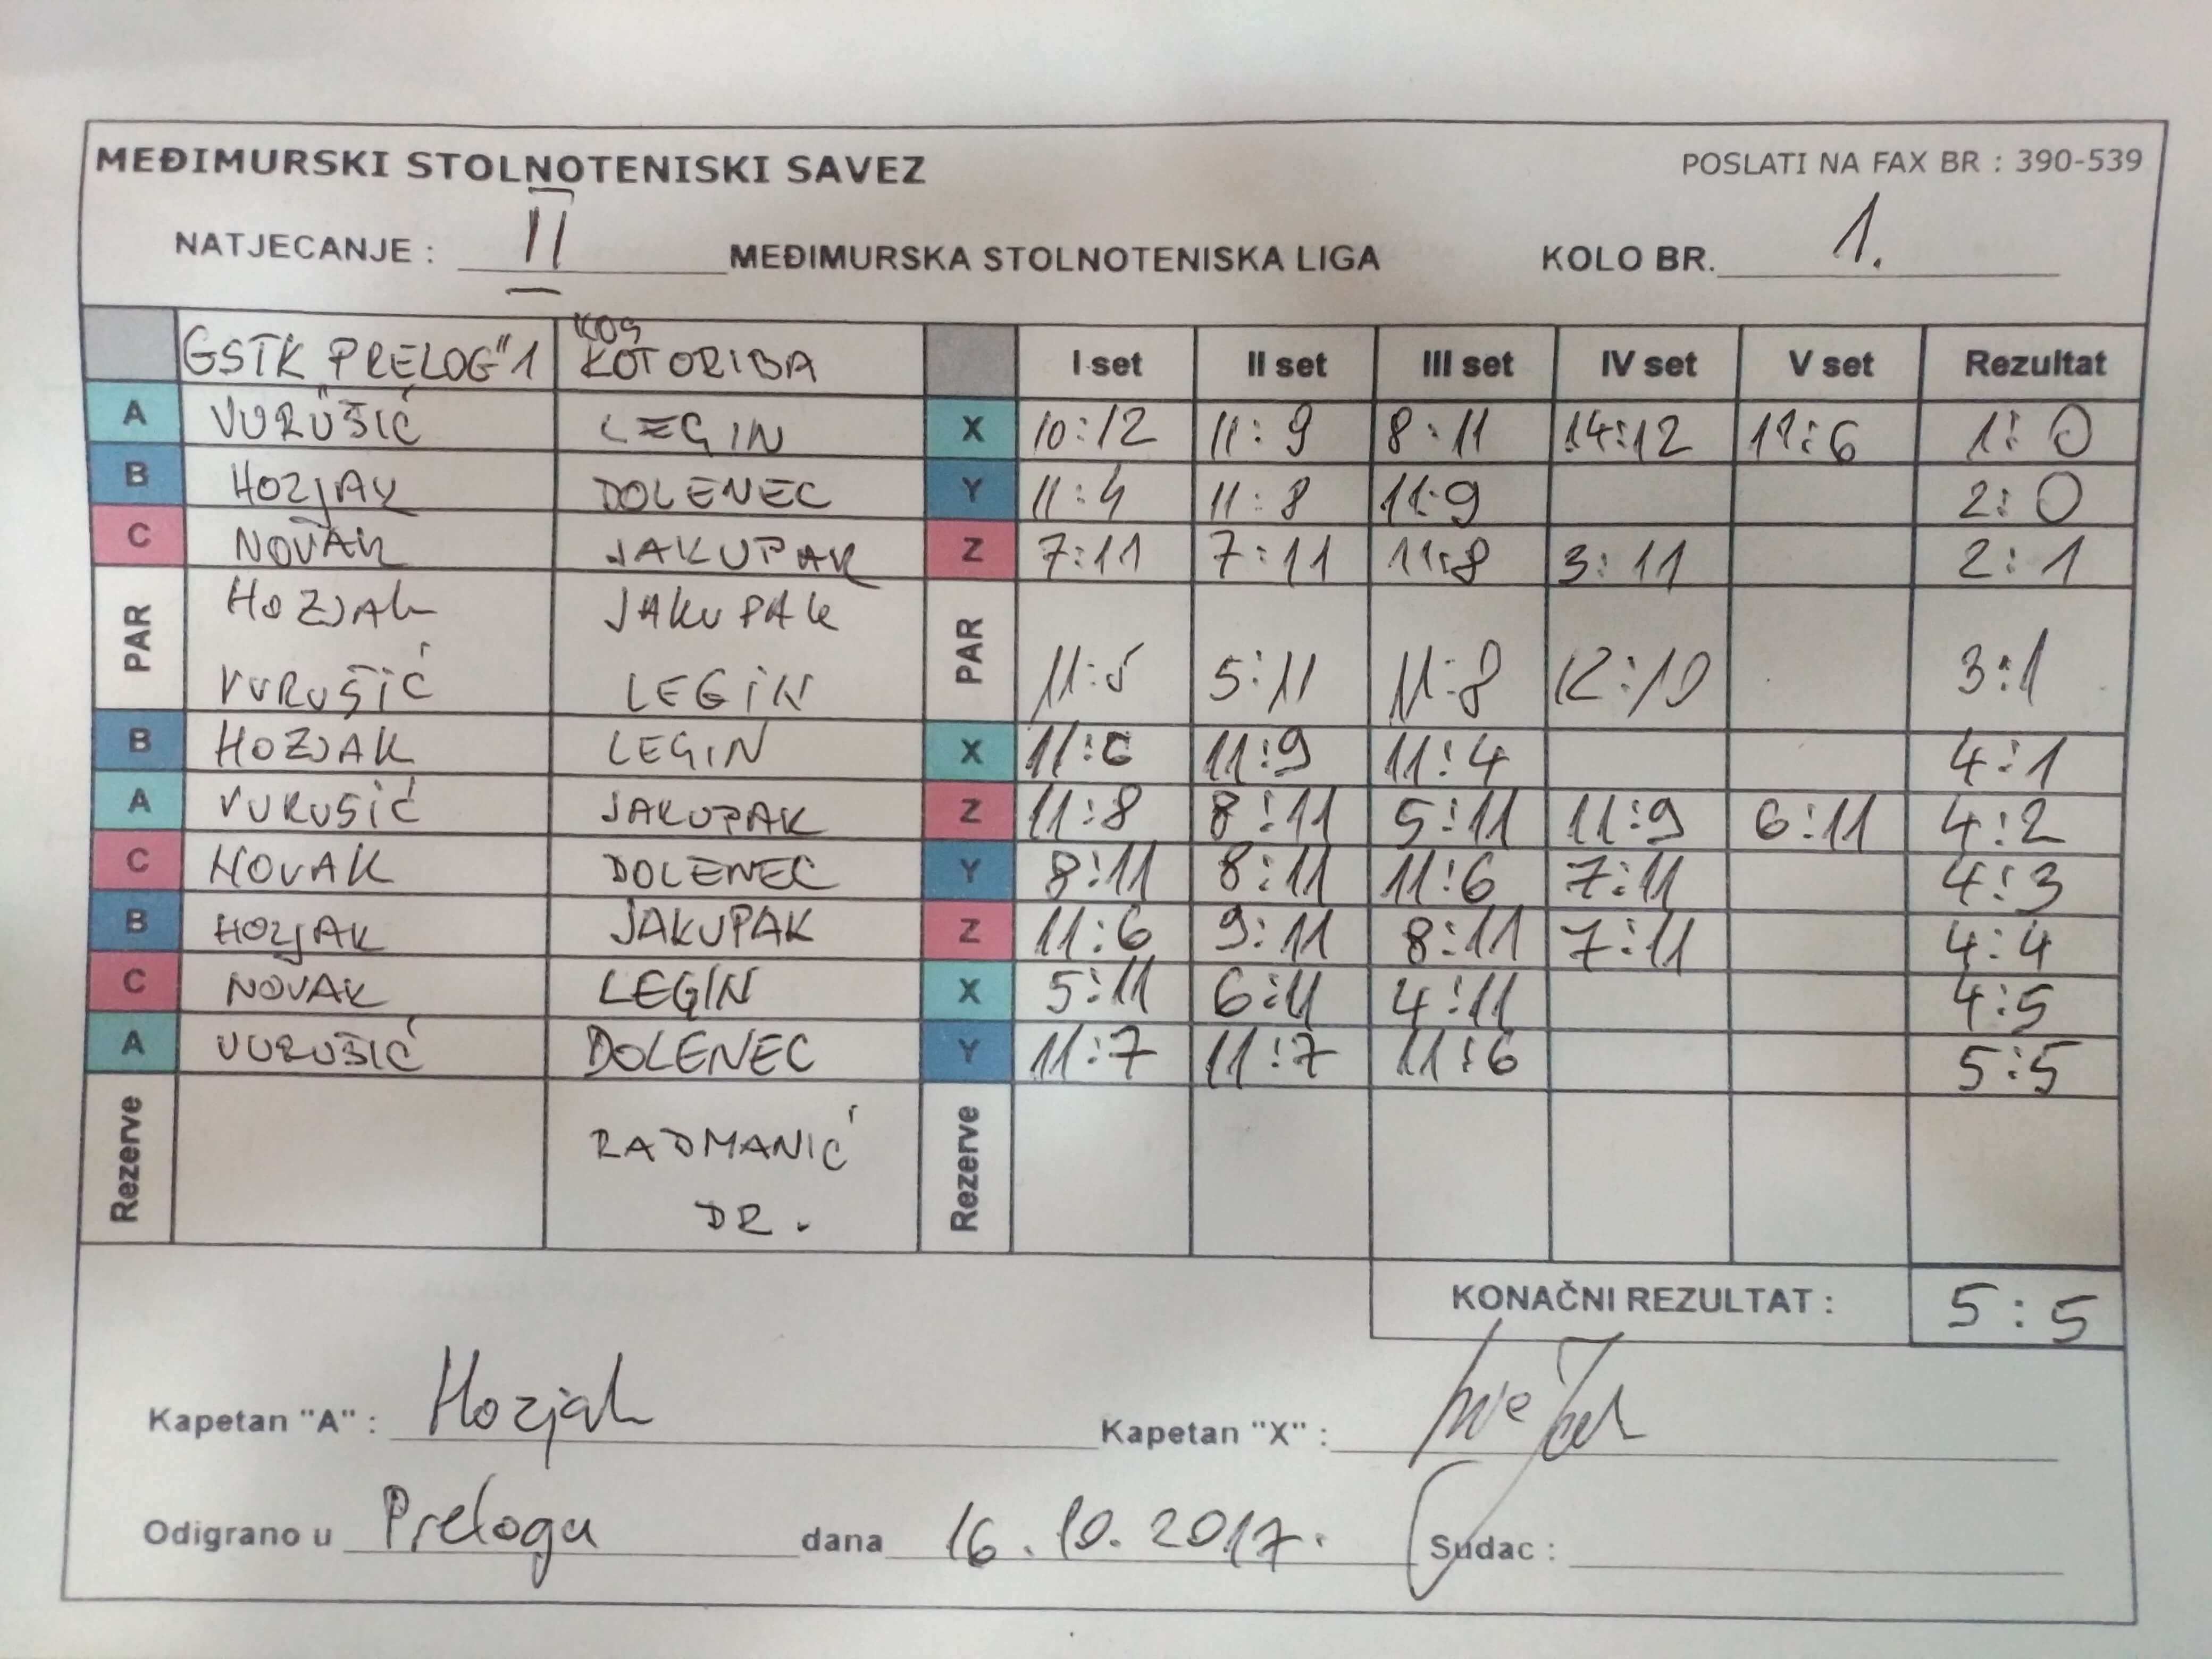 MEĐIMURSKI STOLNOTENISKI SAVEZ POSLATI NA FAX BR : 390-539
NATJECANJE : II MEĐIMURSKA STOLNOTENISKA LIGA KOLO BR. 1.
GSTK "PRELOG" 1 KOTORIBA I set II set III set IV set V set Rezultat
A VURUŠIĆ LEGIN X 10:12 11:9 8:11 14:12 11:6 1:0
B HOZJAK DOLENEC Y 11:4 11:8 11:9 2:0
C NOVAK JAKUPAK Z 7:11 7:11 11:8 3:11 2:1
HOZJAK JAKUPAK
PAR VURUŠIĆ LEGIN PAR 11:5 5:11 11:8 12:10 3:1
B HOZJAK LEGIN X 11:6 11:9 11:4 4:1
A VURUSIĆ JAKUPAK Z 11:8 8:11 5:11 11:9 6:11 4:2
C NOVAK DOLENEC Y 8:11 8:11 11:6 7:11 4:3
B HOZJAK JAKUPAK Z 11:6 9:11 8:11 7:11 4:4
C NOVAK LEGIN X 5:11 6:11 4:11 4:5
A VURUŠIĆ DOLENEC Y 11:7 11:7 11:6 5:5
Rezerve RADMANIĆ Rezerve
DR.
KONAČNI REZULTAT : 5:5
Kapetan "A" : Hozjak Kapetan "X" :
Odigrano u Prelogu dana 16.10.2017. Sudac :